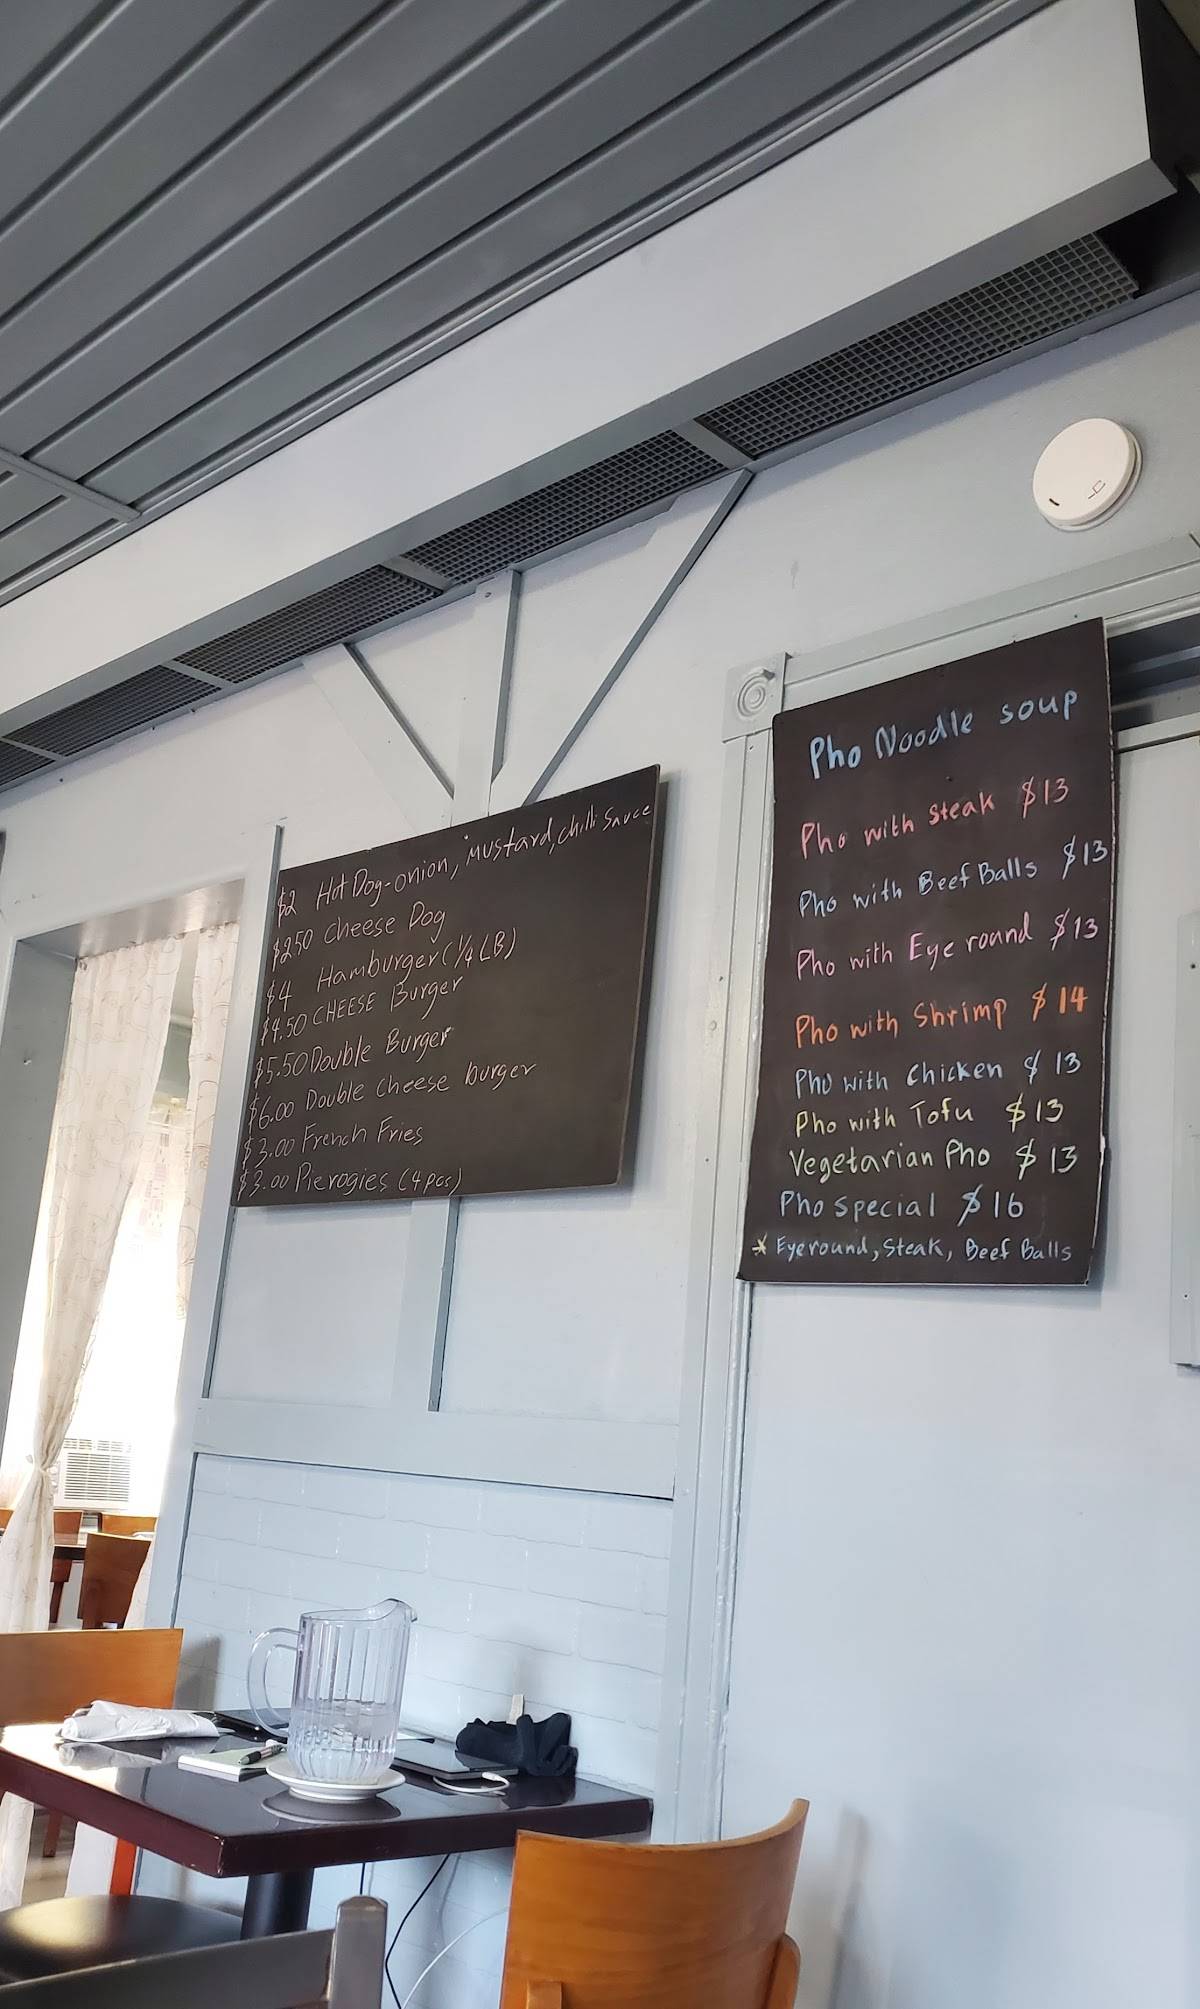 $2 Hot Dog-onion, mustard, chilli Sauce
$2.50 Cheese Dog
$4 Hamburger (1/4 LB)
$4.50 CHEESE Burger
$5.50 Double Burger
$6.00 Double cheese burger
$3.00 French Fries
$3.00 Pierogies (4 pcs)
Pho Noodle soup
Pho with steak $13
Pho with Beef Balls $13
Pho with Eye round $13
Pho with Shrimp $14
Pho with chicken $13
Pho with Tofu $13
Vegetarian Pho $13
Pho special $16
* Eyeround, Steak, Beef Balls